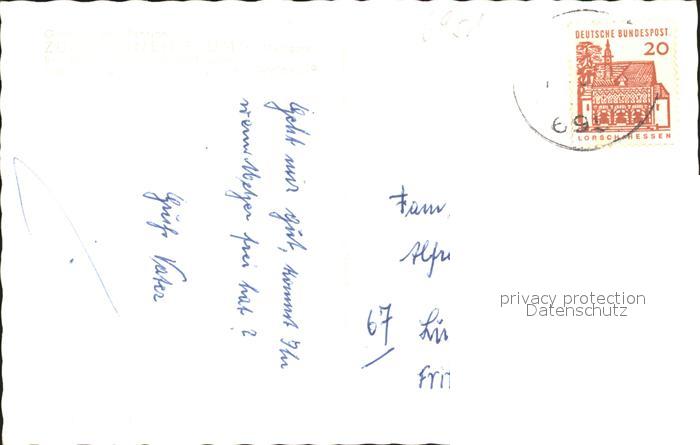 DEUTSCHE BUNDESPOST
20
LORSCH/HESSEN
Geht mir gut, kommt Ihr
wenn Metzger frei hat?
Gruß Vater
Fam.
Alfre
67 Lu
Fri
privacy protection
Datenschutz